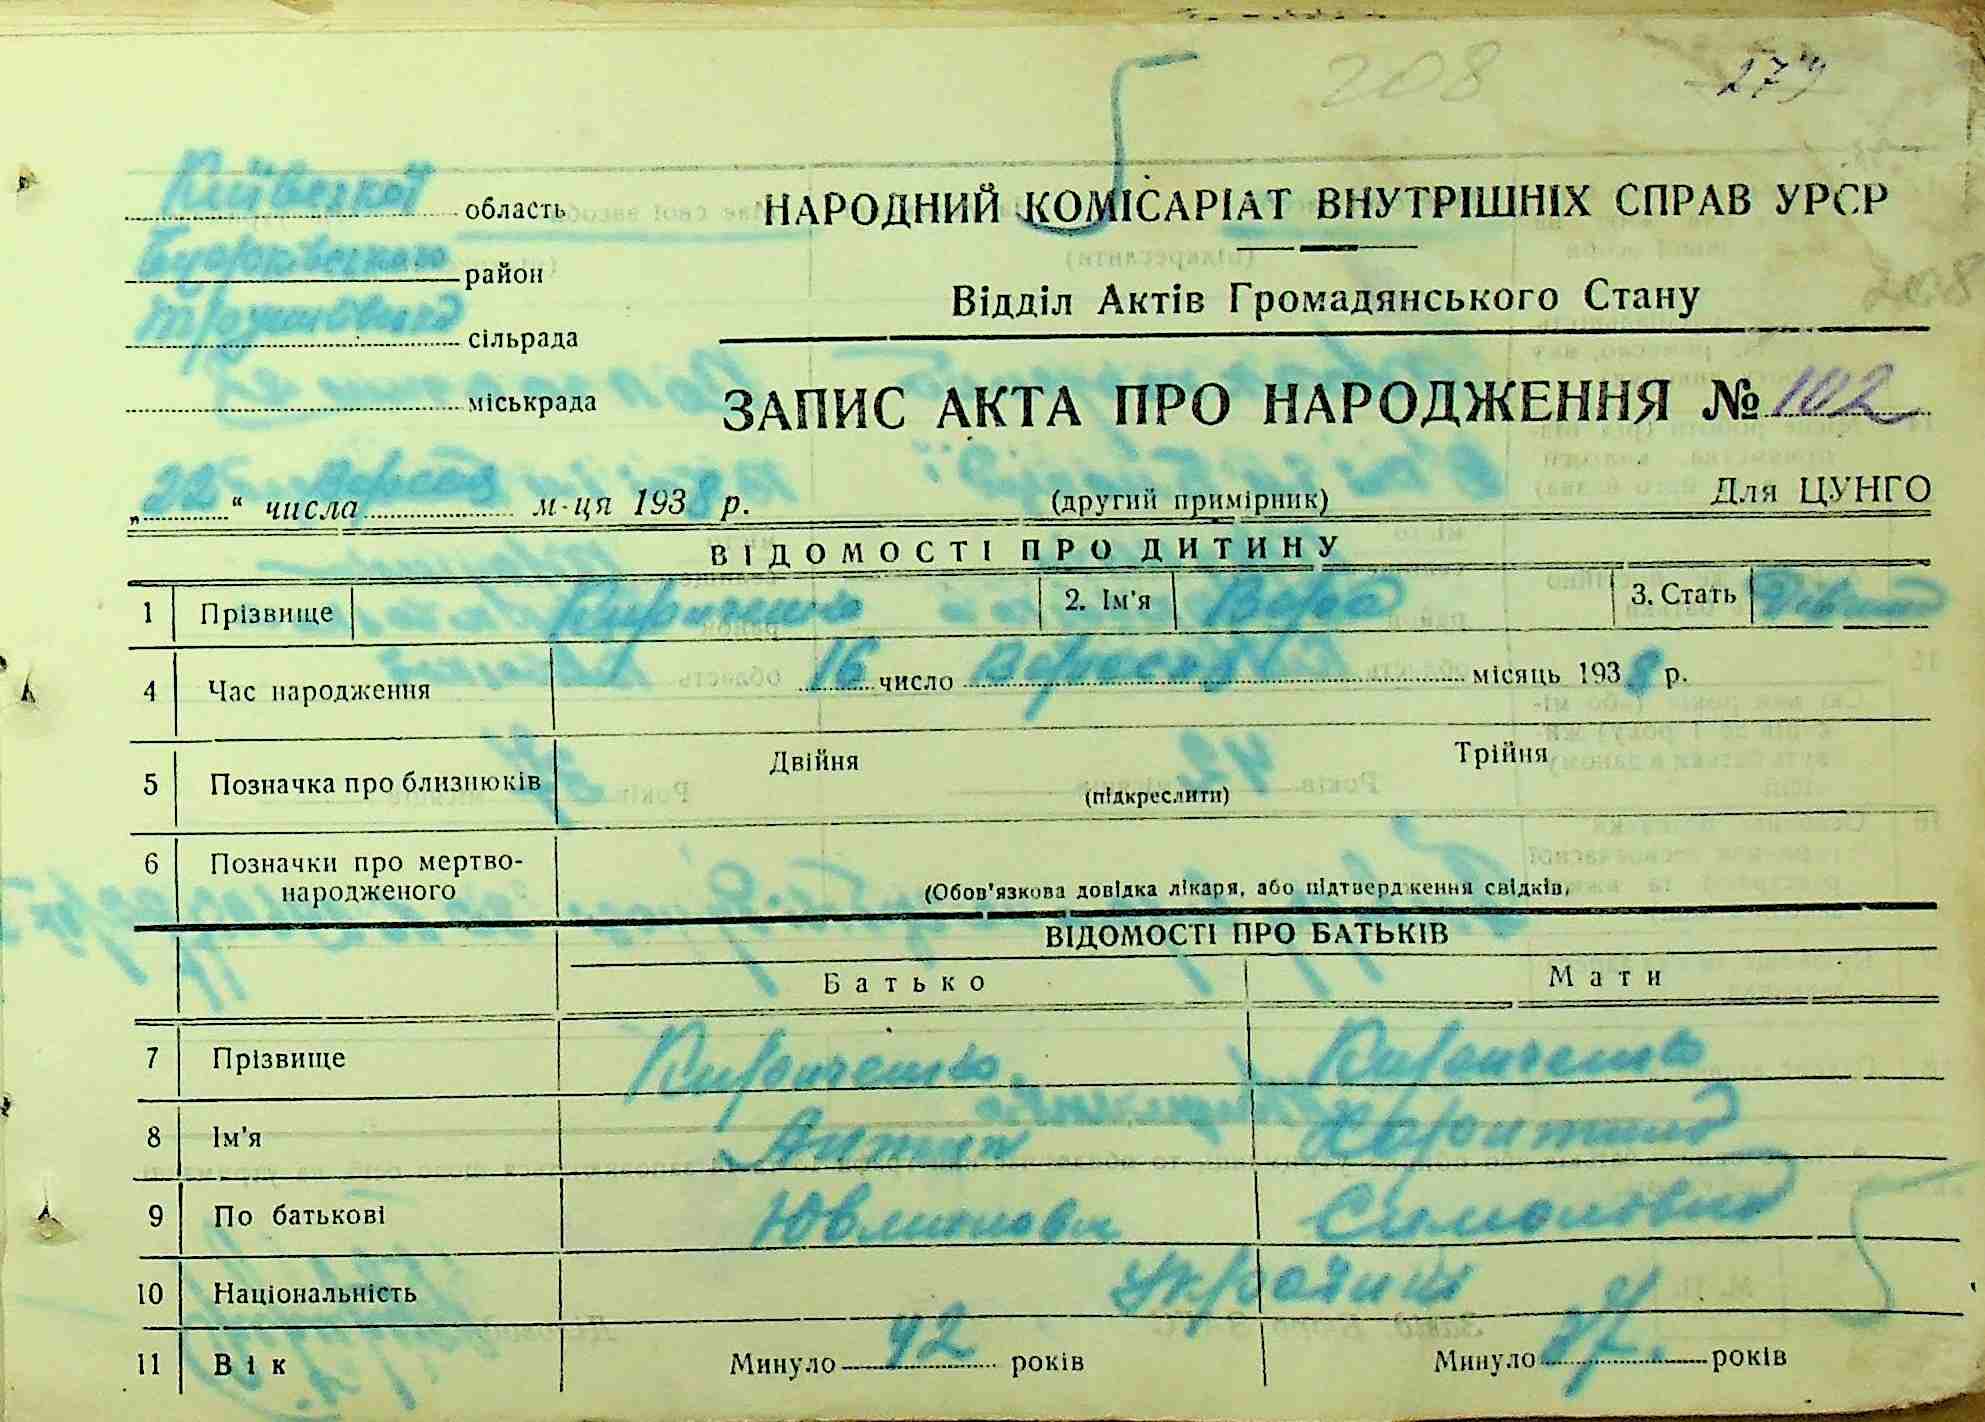 208
279
Київської область
НАРОДНИЙ КОМІСАРІАТ ВНУТРІШНІХ СПРАВ УРСР
район
208
Відділ Актів Громадянського Стану
сільрада
міськрада
ЗАПИС АКТА ПРО НАРОДЖЕННЯ № 102
„22“ числа вересня м-ця 1938 р.
(другий примірник)
Для ЦУНГО
ВІДОМОСТІ ПРО ДИТИНУ
1 Прізвище Кириченко 2. Ім'я Вера 3. Стать
4 Час народження 16 число Вересня місяць 1938 р.
5 Позначка про близнюків Двійня Трійня
(підкреслити)
6 Позначки про мертво-
народженого
(Обов'язкова довідка лікаря, або підтвердження свідків,
ВІДОМОСТІ ПРО БАТЬКІВ
Батько Мати
7 Прізвище Кириченко Кириченко
8 Ім'я Антин Харитина
9 По батькові
10 Національність
11 Вік Минуло 42 років Минуло 37. років